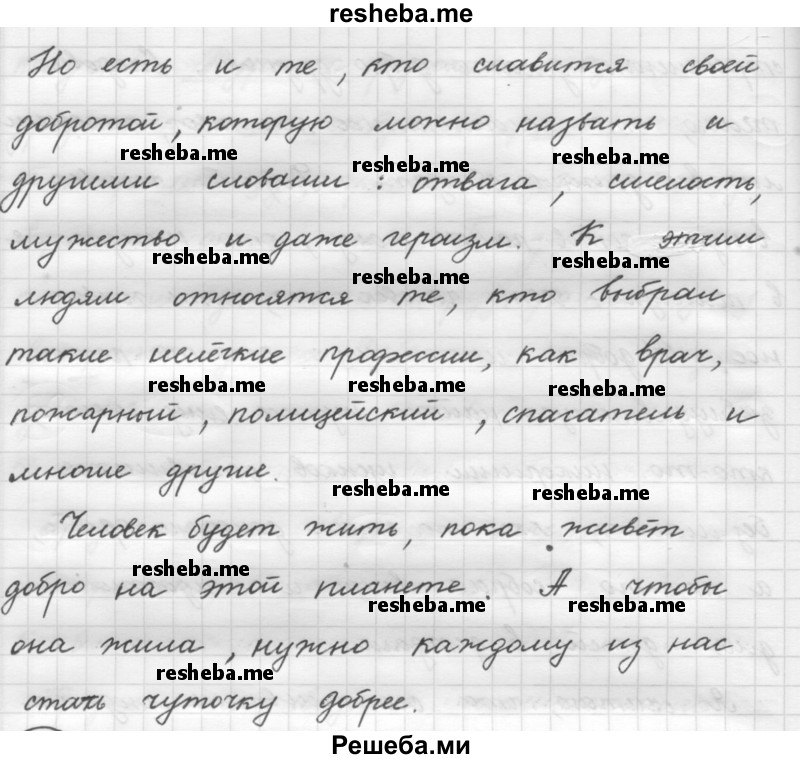 resheba.me
Но есть и те, кто славится своей
добротой, которую можно назвать и
resheba.me resheba.me resheba.me
другими словами: отвага, смелость,
мужество и даже героизм. К этим
resheba.me resheba.me resheba.me
людям относятся те, кто выбрал
такие нелёгкие профессии, как врач,
resheba.me resheba.me resheba.me
пожарный, полицейский, спасатель и
многие другие.
resheba.me resheba.me
Человек будет жить, пока живёт
resheba.me
добро на этой планете. А чтобы
resheba.me resheba.me
она жила, нужно каждому из нас
resheba.me
стать чуточку добрее.
Решеба.ми